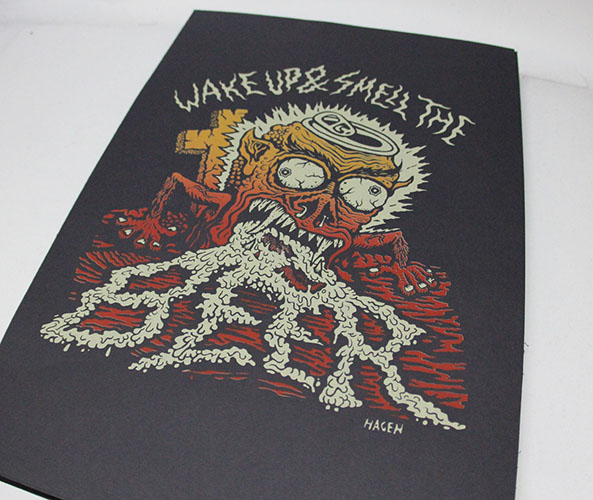 WAKE UP & SMELL THE
BEER
HAGEN